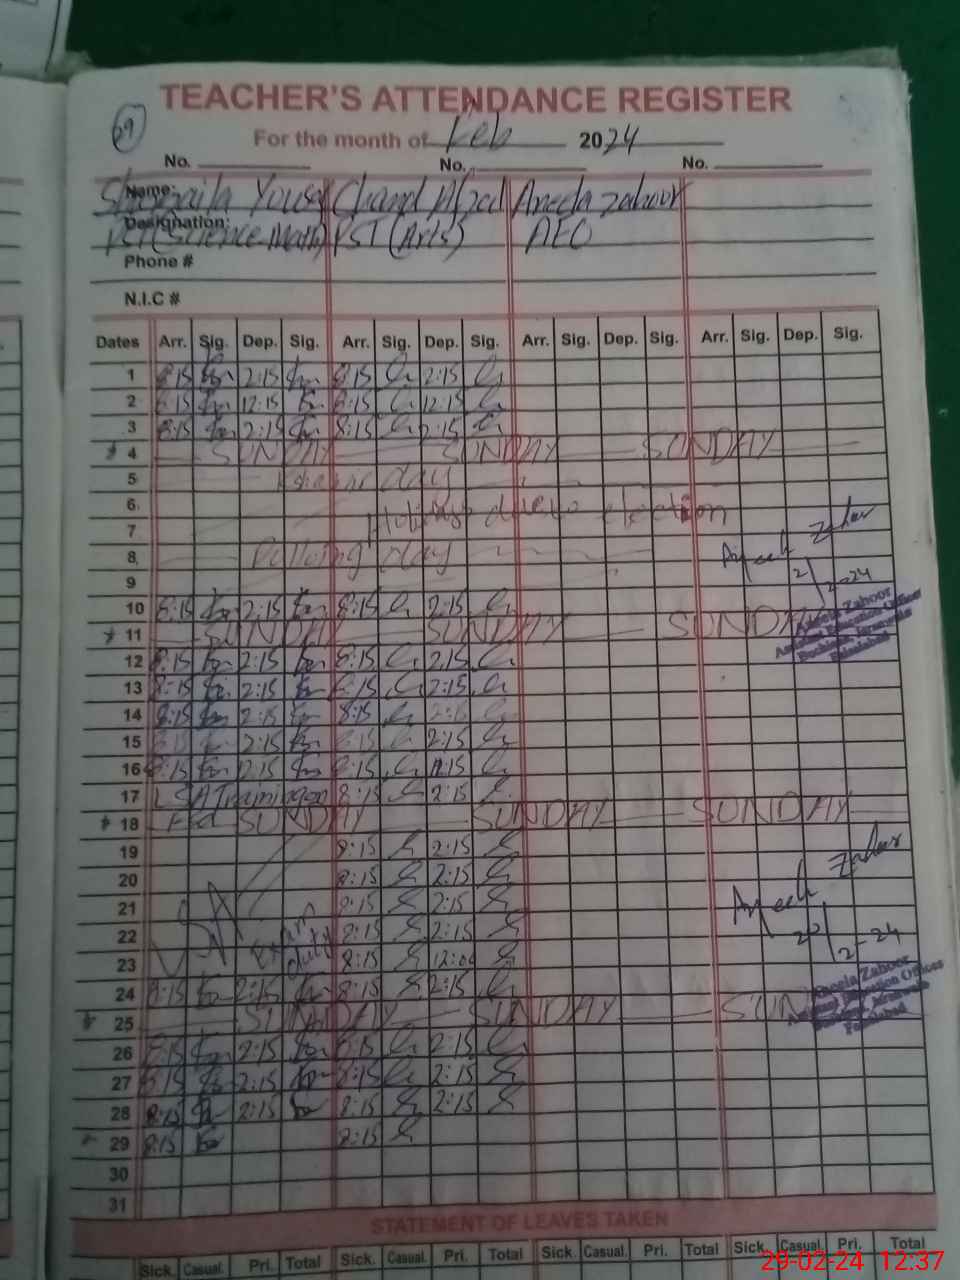 TEACHER'S ATTENDANCE REGISTER
29
For the month of Feb 2024
No. No. No.
Name: Yousaf Chand Aneela Zahoor
Designation: PST (Science-Math) PST (Arts) AEO
Phone #
N.I.C #
Dates Arr. Sig. Dep. Sig. Arr. Sig. Dep. Sig. Arr. Sig. Dep. Sig. Arr. Sig. Dep. Sig.
1 8:15 2:15 8:15 2:15
2 8:15 12:15 8:15 12:15
3 8:15 2:15 8:15 2:15
4 SUNDAY SUNDAY SUNDAY
5 Kashmir day
6
Holidays due to election
7
8 Polling day
9
10 8:15 2:15 8:15 2:15
11 SUNDAY SUNDAY SUNDAY
12 8:15 2:15 8:15 2:15
13 8:15 2:15 8:15 2:15
14 8:15 2:15 8:15
15 2:15 2:15
16 8:15 12:15 8:15
17 LSA Training on 8:15 2:15
18 SUNDAY SUNDAY SUNDAY
19 8:15 2:15
20 8:15 2:15
21 8:15 2:15
22 Exam 8:15 2:15
23 duty 8:15
24 8:15 2:15 8:15 2:15
25 SUNDAY SUNDAY
26 8:15 2:15 8:15 2:15
27 8:15 2:15 8:15 2:15
28 8:15 2:15 8:15 2:15
29 8:15 8:15
30
31
Aneela Zahoor
Aneela Zahoor
Assistant Education Officer
Faisalabad
Aneela Zahoor
20/2-24
Aneela Zahoor
Assistant Education Officer
Faisalabad
STATEMENT OF LEAVES TAKEN
Sick. Casual. Pri. Total Sick. Casual. Pri. Total Sick. Casual. Pri. Total Sick. Casual. Pri. Total
29-02-24 12:37